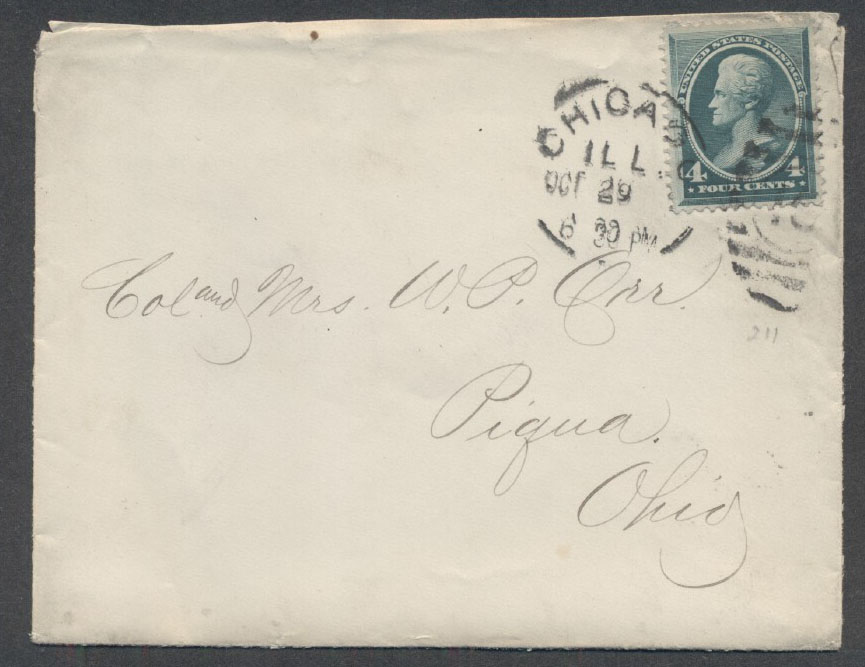 UNITED STATES POSTAGE
4 4
FOUR CENTS
CHICA
ILL.
OCT 29
6 30 PM
Col and Mrs. W. P. Orr.
Piqua.
Ohio
211